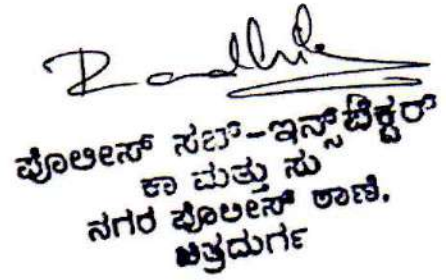 ಪೊಲೀಸ್ ಸಬ್-ಇನ್ಸ್‌ಪೆಕ್ಟರ್
ಕಾ ಮತ್ತು ಸು
ನಗರ ಪೊಲೀಸ್ ಠಾಣೆ.
ಚಿತ್ರದುರ್ಗ